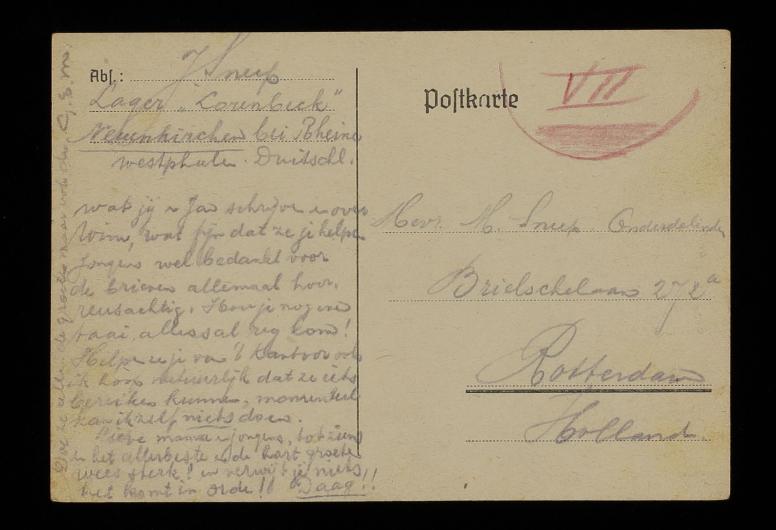 Abs.: J Sneep
Lager „Lorenbeck"
Neuenkirchen bei Rheine
Westphalen. Duitschl.
wat jij en Jan schrijven over
Wim, wat fijn dat ze je helpen
Jongens wel bedankt voor
de brieven allemaal hoor.
reusachtig. Hou je nog even
taai, alles sal reg kom!
Helpen ze je van 't Kantoor ook
ik hoop natuurlijk dat ze iets
bereiken kunnen, momenteel
kan ik zelf niets doen.
Lieve mamma en jongens, tot ziens
en het allerbeste en de hart. groeten
wees sterk! en verwijt je niets
het komt in orde!! Daag!!
Doe ze allen de groeten maar ook de
Postkarte
VII
Mevr. M. Sneep Onderdelinden
Brielschelaan 272a
Rotterdam
Holland